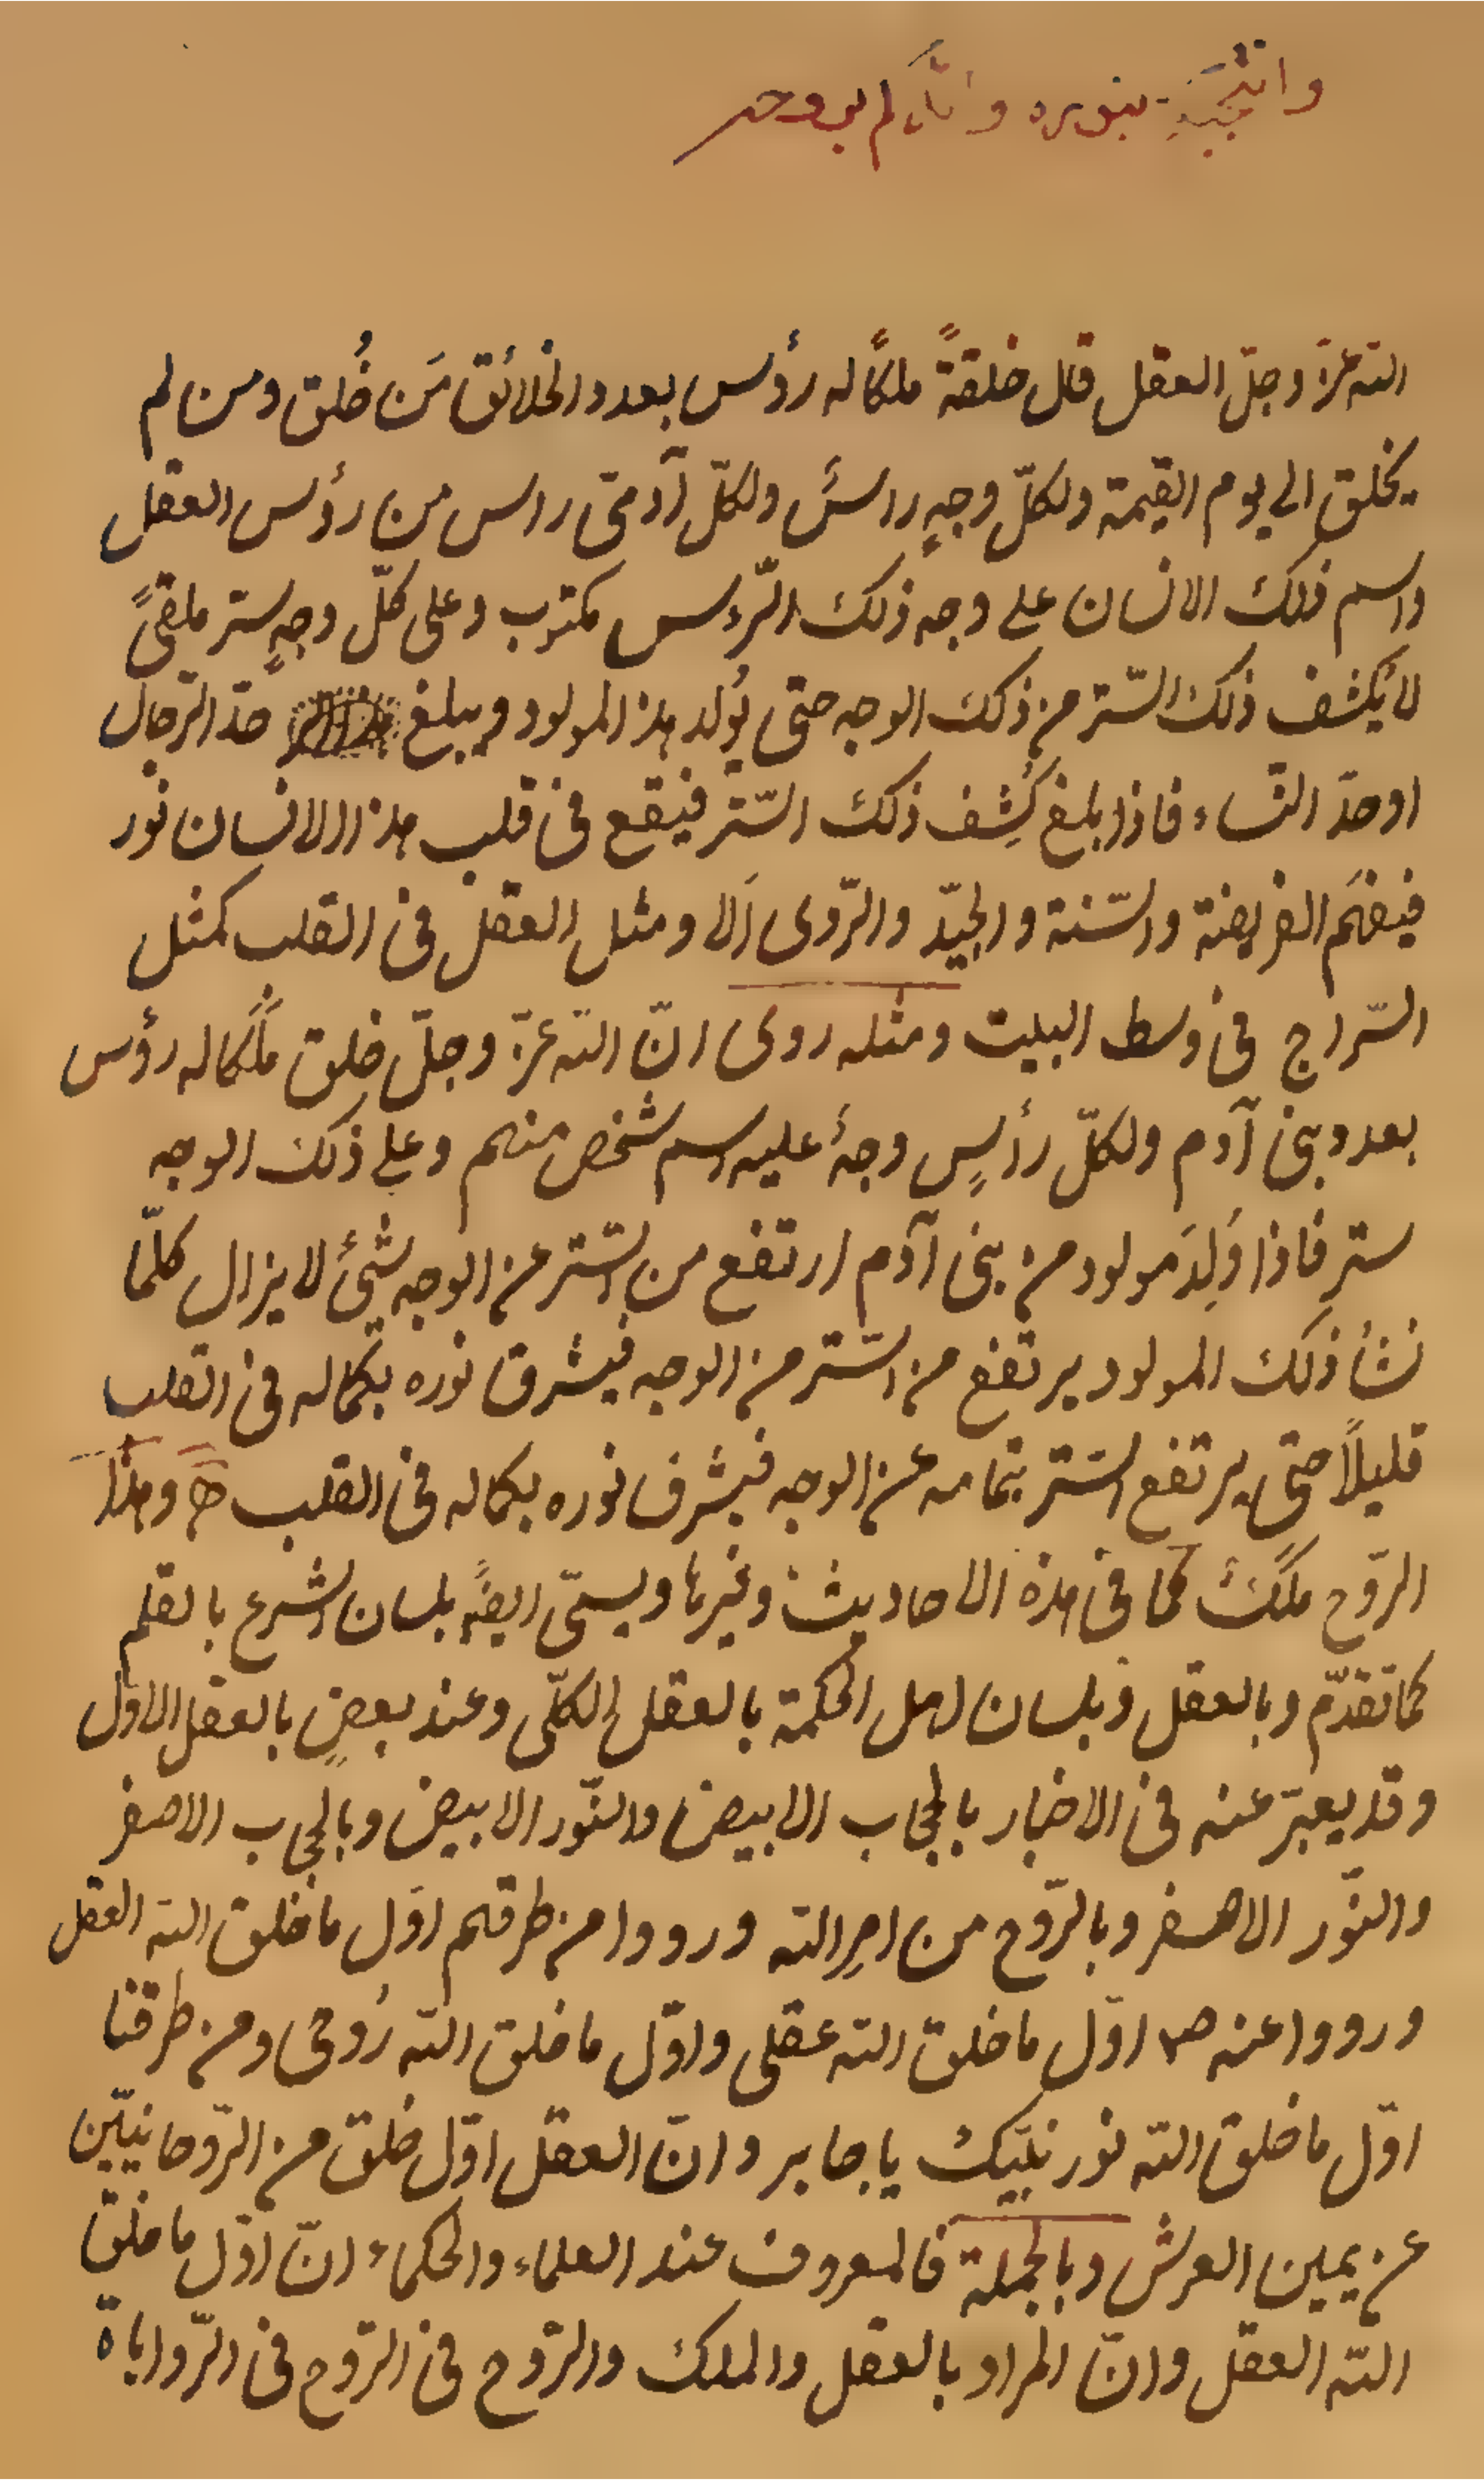 بنوره
الله عزّ وجلّ العقل قال خلقةً ملكًا له رؤس بعدد الخلائق مَن خُلق ومن لم
يخلق الى يوم القيمة ولكلّ وجهٍ راسٌ ولكلّ آدمىّ راس من رؤس العقل
واسم ذلك الانسان على وجه ذلك الرّوس مكتوب وعلى كلّ وجهٍ ستر ملقىً
لا يُكشف ذلك السّتر من ذلك الوجه حتى يُولد هذا المولود ويبلغ حدّ الرّجال
او حدّ النّساء فاذا بلغ كُشِف ذلك السّتر فيقع فى قلب هذا الانسان نور
فيفهَم الفريضة والسّنة والجيّد والرّدى اَلا ومثل العقل فى القلب كمثل
السّراج فى وسط البيت ومثله روى انّ الله عزّ وجلّ خلق مَلَكا له رؤس
بعدد بنى آدم ولكلّ رأسٍ وجهٌ عليه اسم شخص منهم وعلى ذلك الوجه
ستر فاذا وُلِدَ مولود من بنى آدم ارتفع من السّتر عن الوجه شئ لا يزال كلّما
نشأ ذلك المولود يرتفع من السّتر من الوجه فيشرق نوره بكماله فى القلب
قليلاً حتى يرتفع السّتر بتمامه عن الوجه فيشرق نوره بكماله فى القلب وهذا
الرّوح ملكٌ كما فى هذه الاحاديث وغيرها ويسمّى ايضًا بلسان الشرع بالقلم
كما تقدّم وبالعقل وبلسان اهل الحكمة بالعقل الكلّى وعند بعضٍ بالعقل الاوّل
وقد يعبّر عنه فى الاخبار بالحجاب الابيض والنّور الابيض وبالحجاب الاصفر
والنّور الاصفر وبالرّوح من امرِ الله ورووا من طرقهم اوّل ما خلق الله العقل
ورووا عنه ص اوّل ما خلق الله عقلى واوّل ما خلق الله رُوحى ومن طرقنا
اوّل ما خلق الله نور نبيّك يا جابر وانّ العقل اوّل خلق من الرّوحانيّين
عن يمين العرش وبالجملة فالمعروف عند العلماء والحكماء انّ اوّل ما خلق
الله العقل وانّ المراد بالعقل والملك والرّوح فى الرّوح فى الرّواياة